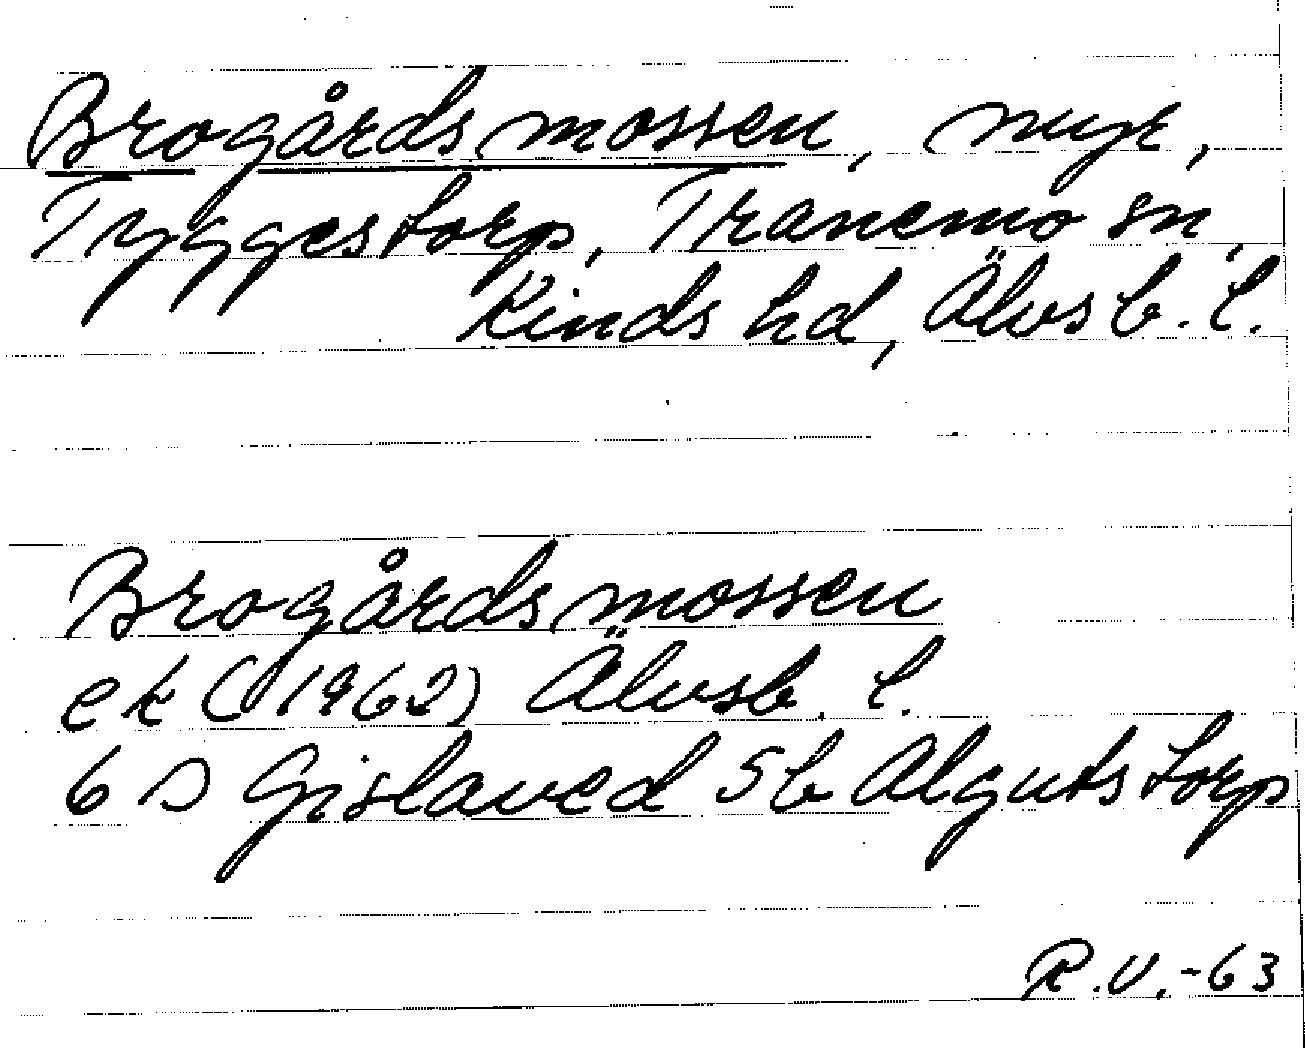 Brogårdsmossen, myr,
Tyggestorp, Tranemo sn,
Kinds hd, Älvsb. l.
Brogårdsmossen
ek (1962) Älvsb. l.
6 D Gislaved 5b Algutstorp
R.V.-63